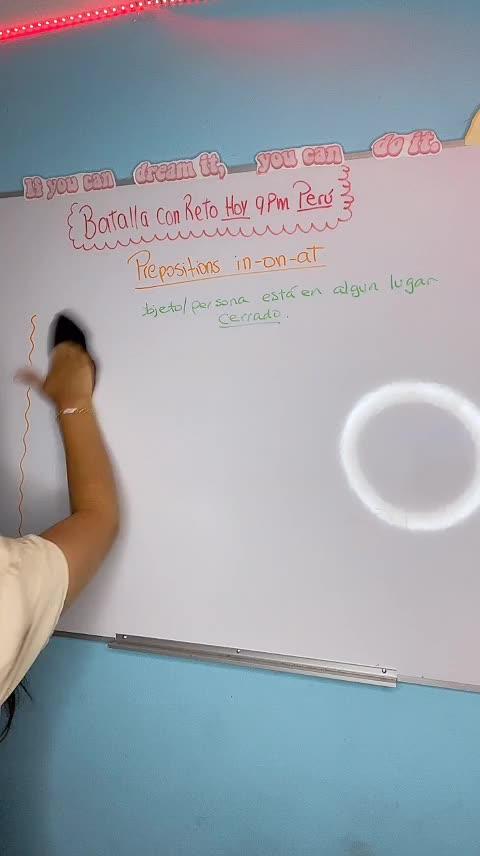 If you can dream it, you can do it.
Batalla con Reto Hoy 9 Pm Perú
Prepositions in-on-at
objeto/persona está en algun lugar
cerrado.